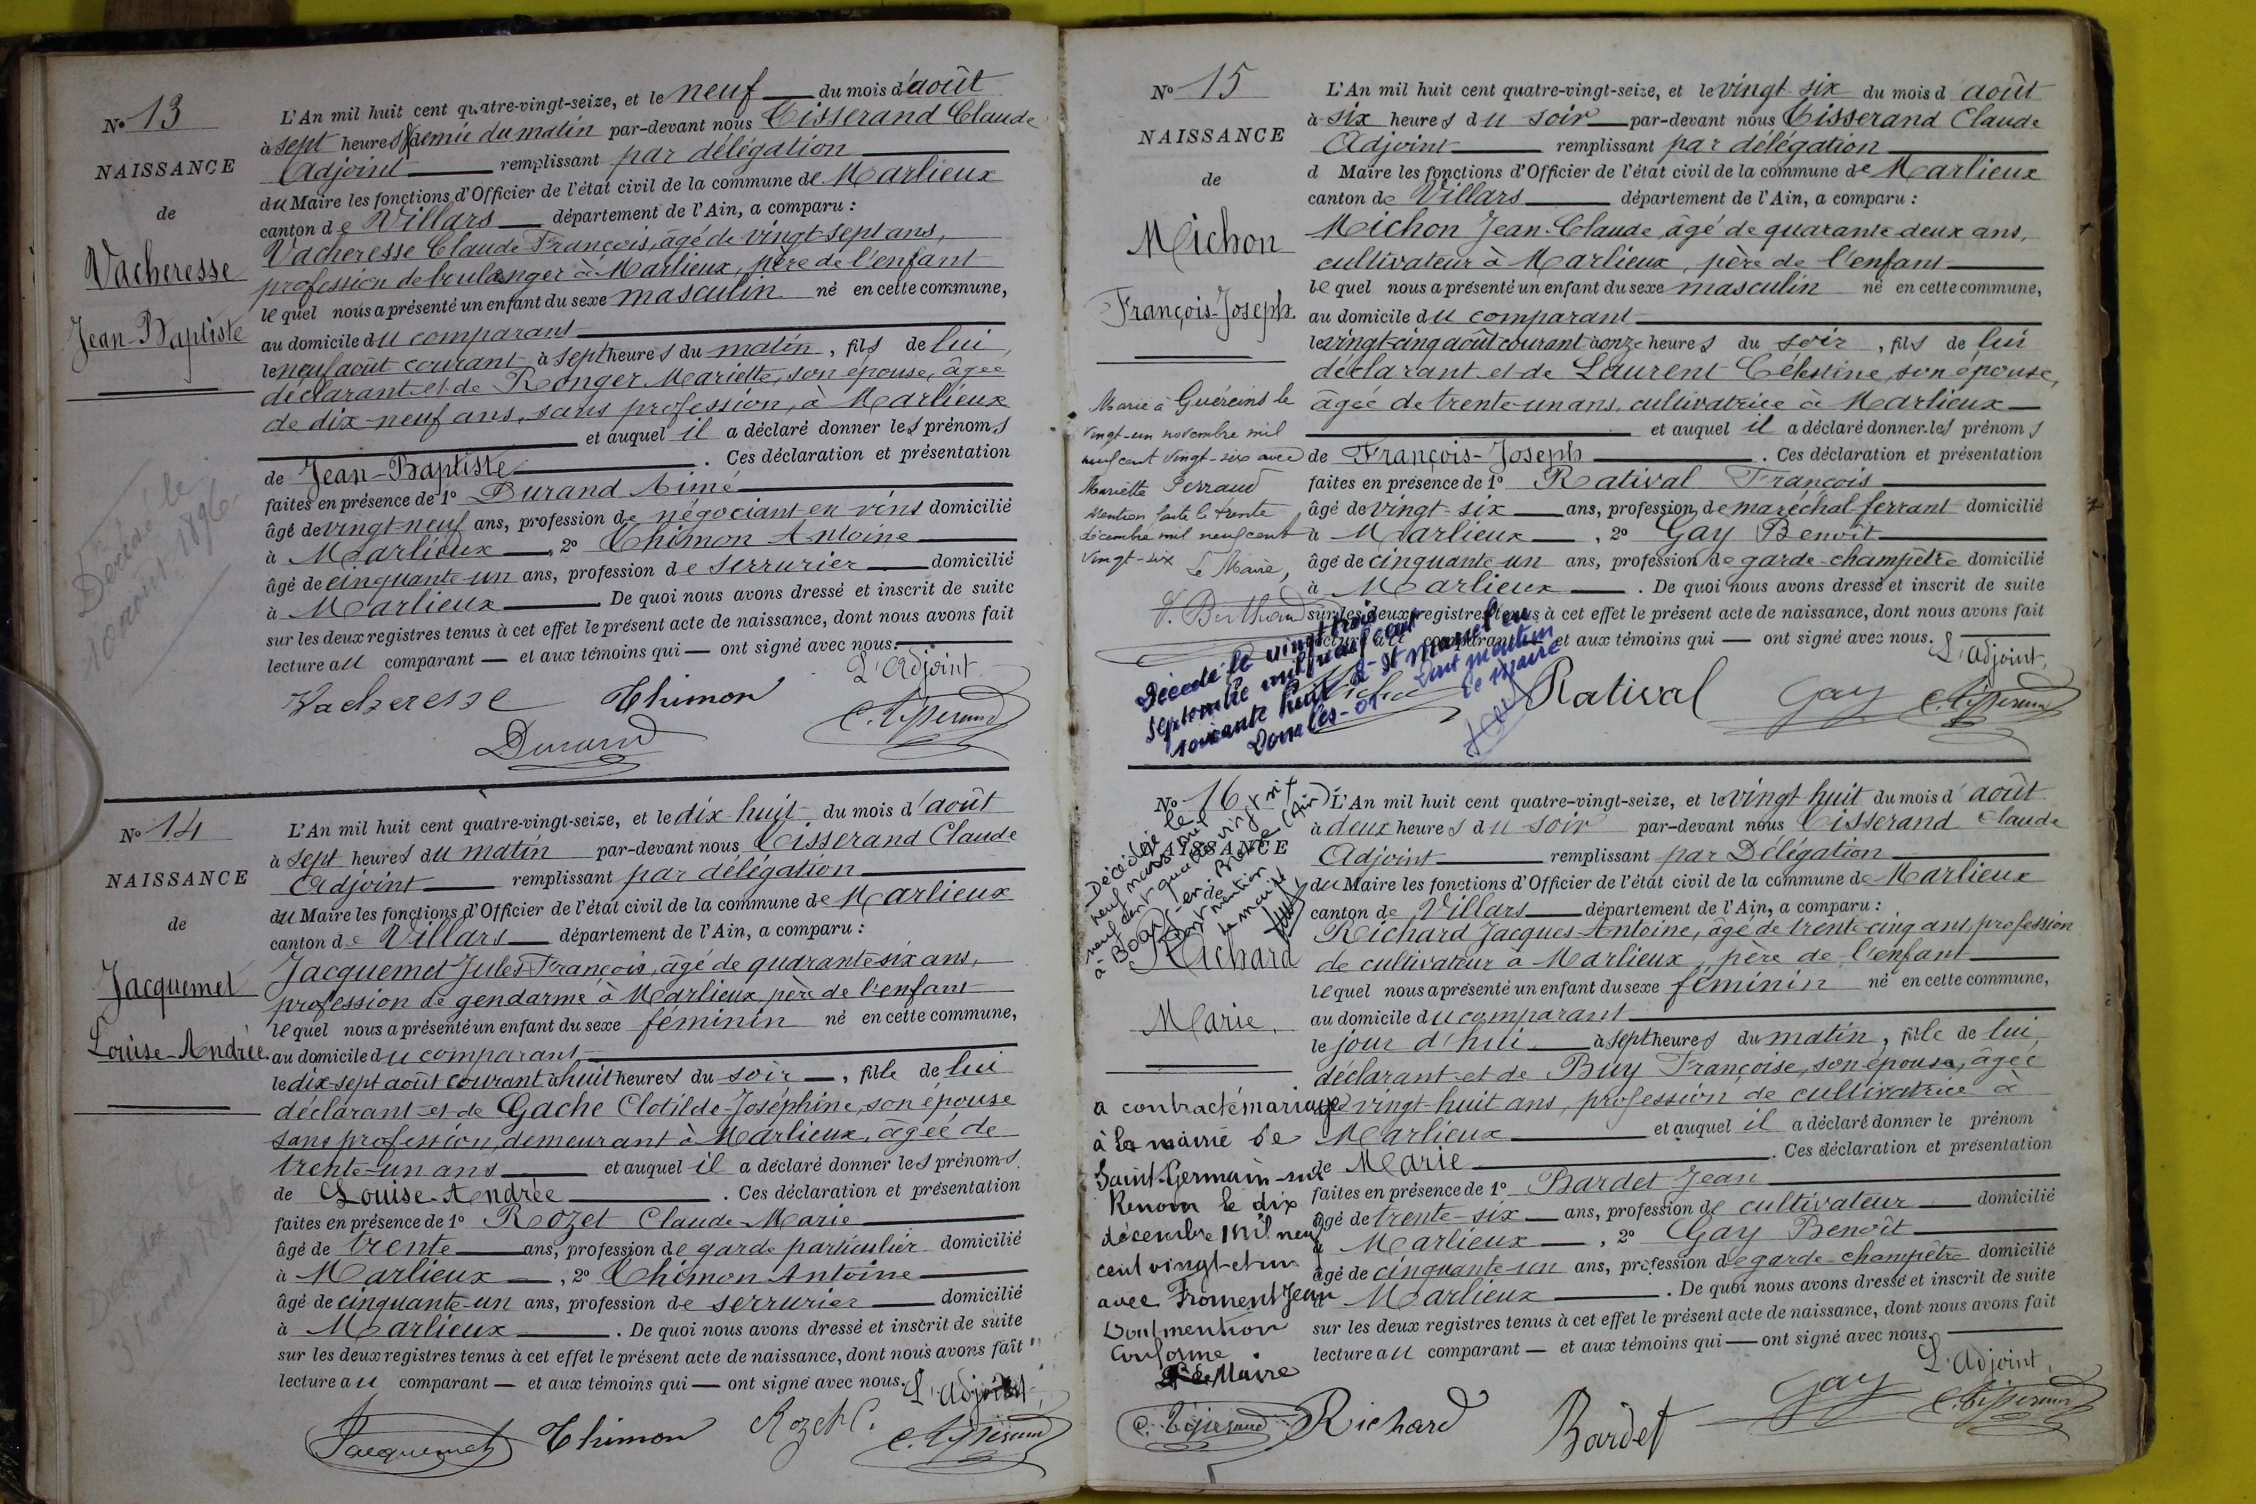 No 13
NAISSANCE
de
Vacheresse
Jean-Baptiste
Décédé le
10 août 1896
L'An mil huit cent quatre-vingt-seize, et le neuf du mois d'août
à sept heures & demie du matin par-devant nous Tisserand Claude
Adjoint remplissant par délégation
du Maire les fonctions d'Officier de l'état civil de la commune de Marlieux
canton de Villars département de l'Ain, a comparu :
Vacheresse Claude François, âgé de vingt-sept ans,
profession de boulanger à Marlieux, père de l'enfant
lequel nous a présenté un enfant du sexe masculin né en cette commune,
au domicile du comparant
le neuf août courant à sept heures du matin, fils de lui
déclarant et de Ronger Mariette, son épouse, âgée
de dix-neuf ans, sans profession, à Marlieux
et auquel il a déclaré donner les prénoms
de Jean-Baptiste. Ces déclaration et présentation
faites en présence de 1º Durand Aimé
âgé de vingt-neuf ans, profession de négociant en vins domicilié
à Marlieux, 2º Thimon Antoine
âgé de cinquante-un ans, profession de serrurier domicilié
à Marlieux De quoi nous avons dressé et inscrit de suite
sur les deux registres tenus à cet effet le présent acte de naissance, dont nous avons fait
lecture au comparant — et aux témoins qui — ont signé avec nous.
L'Adjoint
Vacheresse Thimon C. Tisserand
Durand
No 14
NAISSANCE
de
Jacquemet
Louise-Andrée
1896
L'An mil huit cent quatre-vingt-seize, et le dix huit du mois d'août
à sept heures du matin par-devant nous Tisserand Claude
Adjoint remplissant par délégation
du Maire les fonctions d'Officier de l'état civil de la commune de Marlieux
canton de Villars département de l'Ain, a comparu :
Jacquemet Jules François, âgé de quarante six ans,
profession de gendarme à Marlieux, père de l'enfant
lequel nous a présenté un enfant du sexe féminin né en cette commune,
au domicile du comparant
le dix-sept août courant à huit heures du soir —, fille de lui
déclarant et de Gache Clotilde-Joséphine, son épouse
sans profession, demeurant à Marlieux, âgée de
trente-un ans et auquel il a déclaré donner les prénoms
de Louise-Andrée. Ces déclaration et présentation
faites en présence de 1º Rozet Claude-Marie
âgé de trente ans, profession de garde particulier domicilié
à Marlieux —, 2º Thimon Antoine
âgé de cinquante-un ans, profession de serrurier domicilié
à Marlieux. De quoi nous avons dressé et inscrit de suite
sur les deux registres tenus à cet effet le présent acte de naissance, dont nous avons fait
lecture au comparant — et aux témoins qui — ont signé avec nous.
L'Adjoint
Jacquemet Thimon Rozet C. C. Tisserand
No 15
NAISSANCE
de
Michon
François-Joseph
Marié à Guéreins le
vingt-un novembre mil
neuf cent vingt-six avec
Mariette Perraud
Mention faite le trente
décembre mil neuf cent
vingt-six
Le Maire,
L'An mil huit cent quatre-vingt-seize, et le vingt six du mois d août
à six heures du soir par-devant nous Tisserand Claude
Adjoint remplissant par délégation
d Maire les fonctions d'Officier de l'état civil de la commune de Marlieux
canton de Villars département de l'Ain, a comparu :
Michon Jean-Claude, âgé de quarante-deux ans,
cultivateur à Marlieux, père de l'enfant
lequel nous a présenté un enfant du sexe masculin né en cette commune,
au domicile du comparant
le vingt-cinq août courant à onze heures du soir, fils de lui
déclarant et de Laurent Célestine, son épouse,
âgée de trente-un ans, cultivatrice à Marlieux
et auquel il a déclaré donner les prénoms
de François-Joseph. Ces déclaration et présentation
faites en présence de 1º Ratival François
âgé de vingt-six ans, profession de maréchal-ferrant domicilié
à Marlieux, 2º Gay Benoît
âgé de cinquante-un ans, profession de garde-champêtre domicilié
à Marlieux. De quoi nous avons dressé et inscrit de suite
sur les deux registres tenus à cet effet le présent acte de naissance, dont nous avons fait
lecture au comparant et aux témoins qui — ont signé avec nous.
L'Adjoint,
Décédé le vingt trois
septembre mil neuf cent
soixante huit à St Marcel en
Dombes - 01
Dont mention
Le Maire
Ratival Gay C. Tisserand
No 16
NAISSANCE
de
Richard
Marie.
Décédée le
neuf mars mil
neuf cent quatre vingt six
à Bourg-en-Bresse (Ain)
Dont mention
Le maire
L'An mil huit cent quatre-vingt-seize, et le vingt huit du mois d'août
à deux heures du soir par-devant nous Tisserand Claude
Adjoint remplissant par Délégation
du Maire les fonctions d'Officier de l'état civil de la commune de Marlieux
canton de Villars département de l'Ain, a comparu :
Richard Jacques-Antoine, âgé de trente-cinq ans, profession
de cultivateur à Marlieux, père de l'enfant
lequel nous a présenté un enfant du sexe féminin né en cette commune,
au domicile du comparant
le jour d'hui à sept heures du matin, fille de lui
déclarant et de Buy Françoise, son épouse, âgée
de vingt-huit ans, profession de cultivatrice à
Marlieux et auquel il a déclaré donner le prénom
de Marie. Ces déclaration et présentation
faites en présence de 1º Bardet Jean
âgé de trente-six ans, profession de cultivateur domicilié
à Marlieux, 2º Gay Benoît
âgé de cinquante-un ans, profession de garde-champêtre domicilié
à Marlieux. De quoi nous avons dressé et inscrit de suite
sur les deux registres tenus à cet effet le présent acte de naissance, dont nous avons fait
lecture au comparant — et aux témoins qui — ont signé avec nous.
L'Adjoint,
a contracté mariage
à la mairie de
Saint-Germain-sur
Renom le dix
décembre mil neuf
cent vingt-et-un
avec Froment Jean
Dont mention
Conforme
Le Maire
C. Tisserand Richard Bardet Gay C. Tisserand